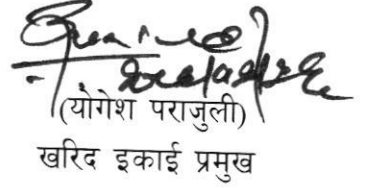 (योगेश पराजुली)
खरिद इकाई प्रमुख